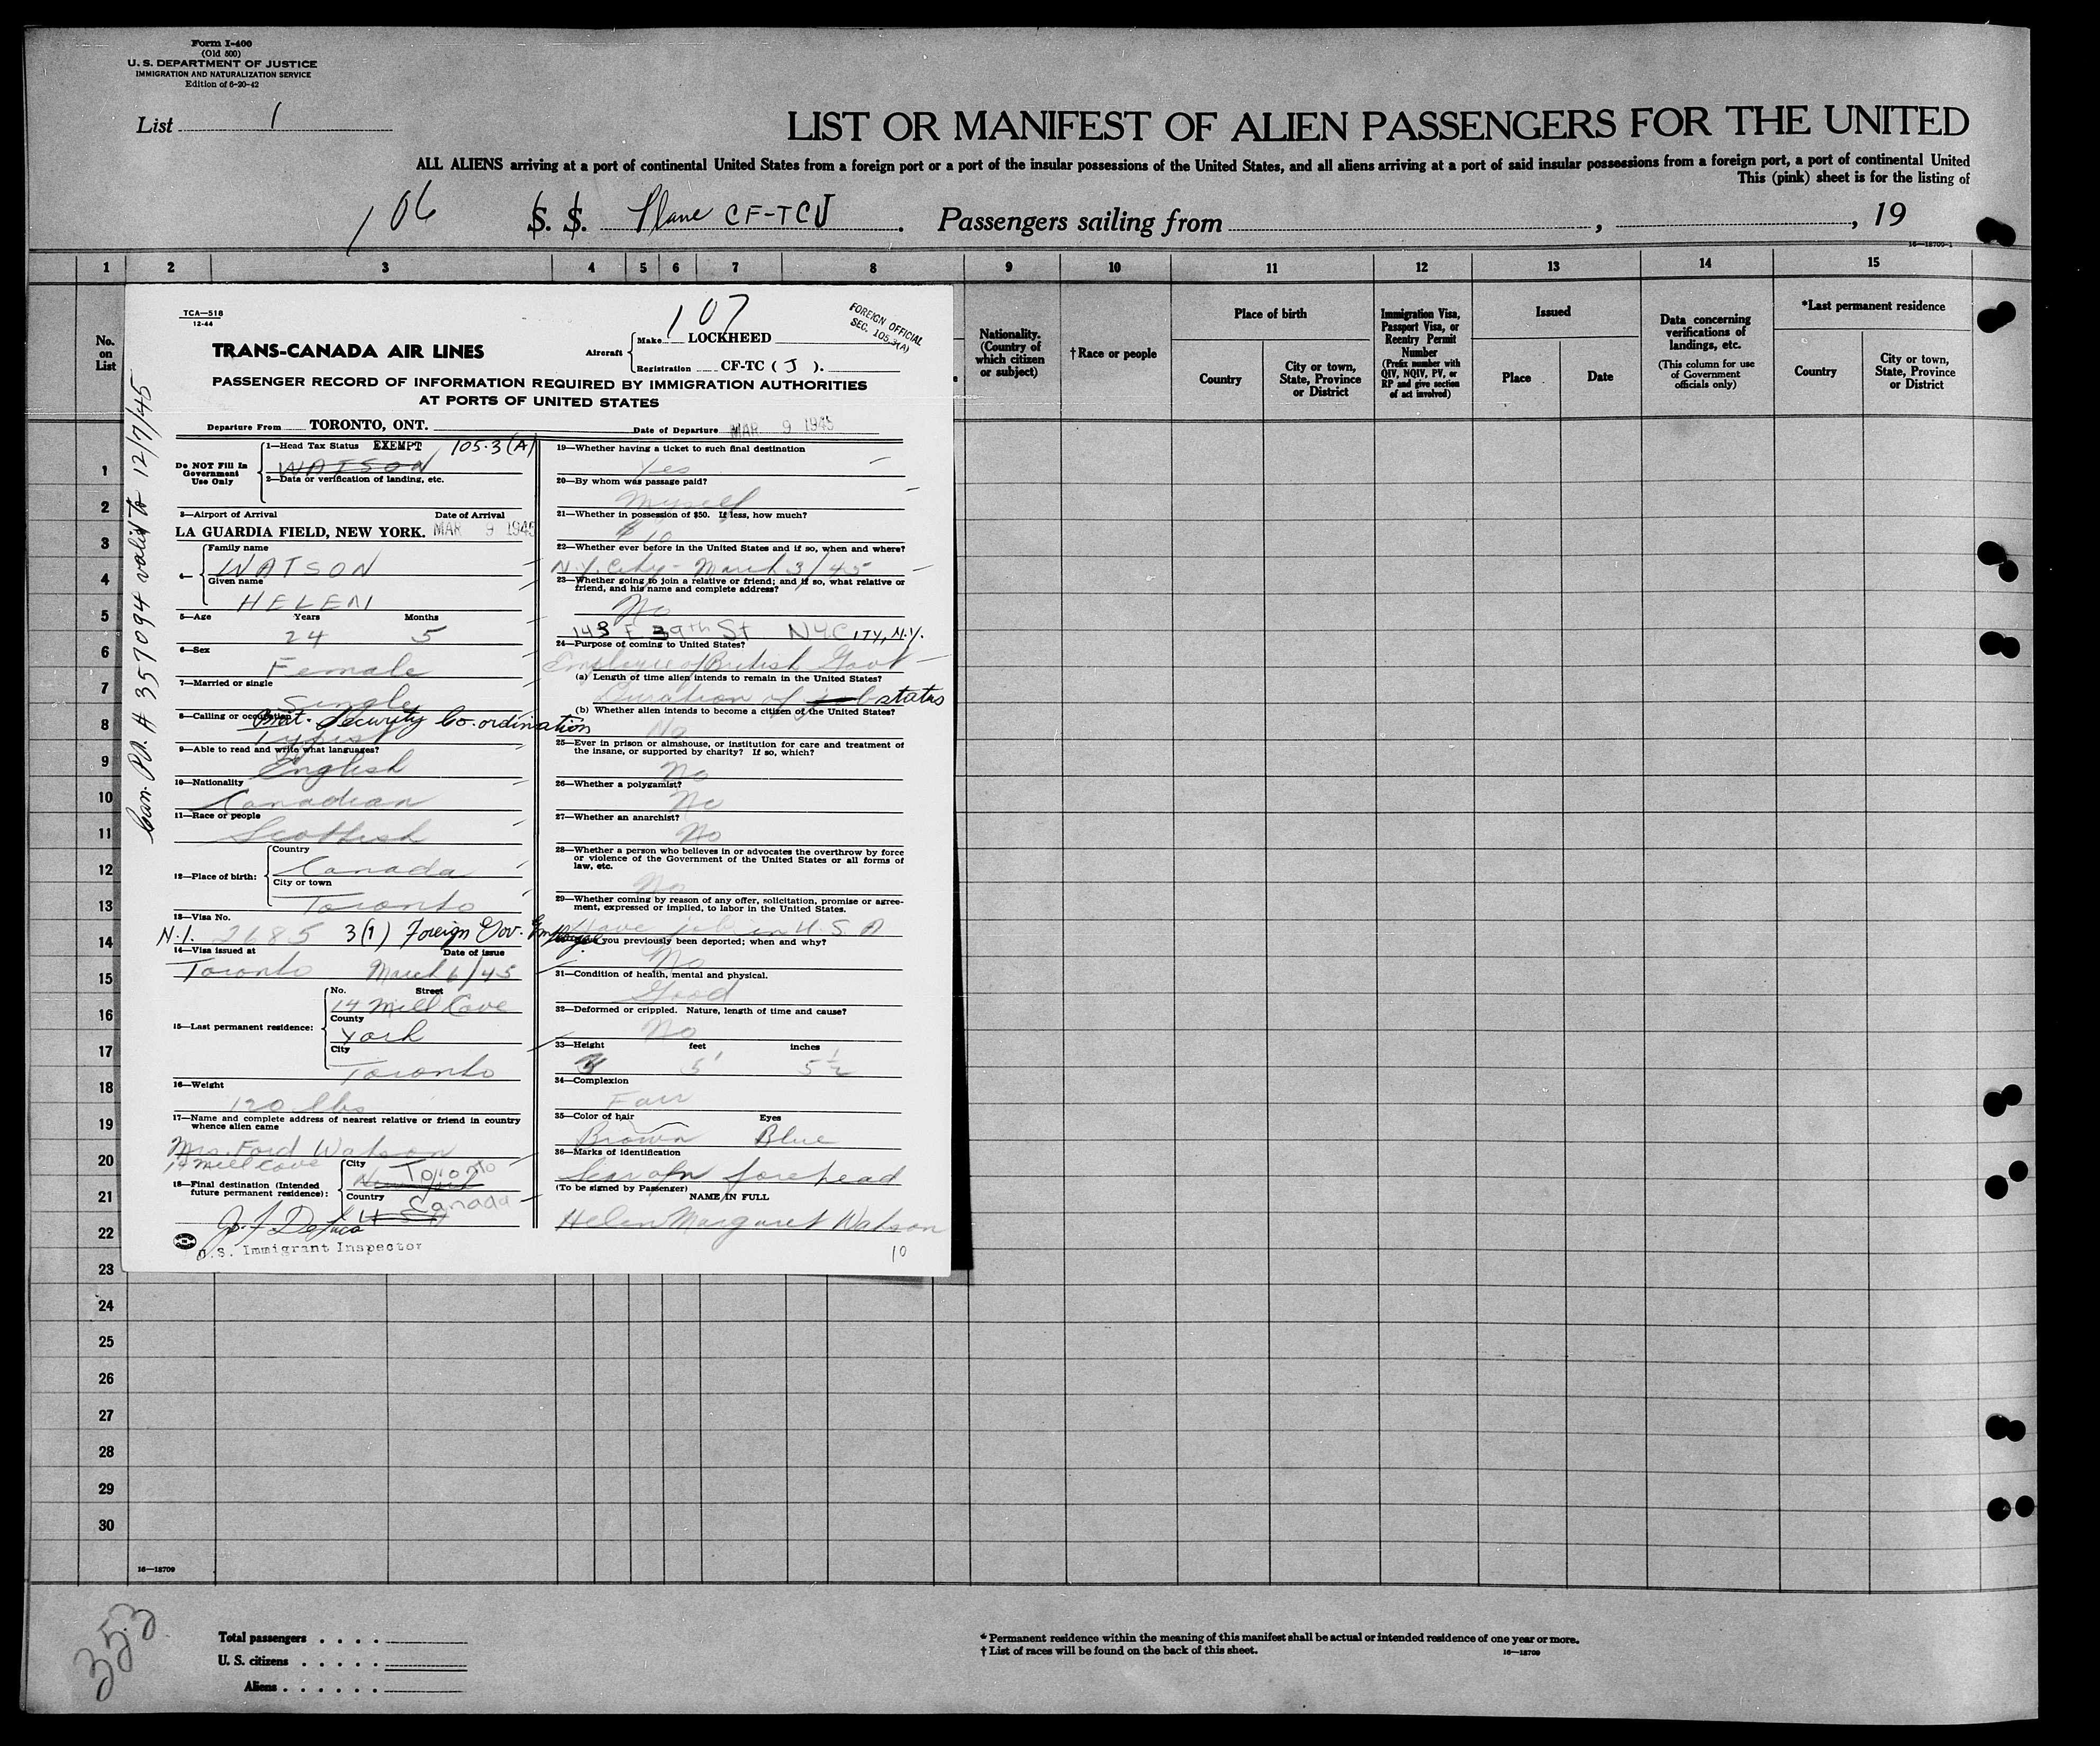 Form I-400
(Old 500)
U. S. DEPARTMENT OF JUSTICE
IMMIGRATION AND NATURALIZATION SERVICE
Edition of 6-20-42
List 1
LIST OR MANIFEST OF ALIEN PASSENGERS FOR THE UNITED
ALL ALIENS arriving at a port of continental United States from a foreign port or a port of the insular possessions of the United States, and all aliens arriving at a port of said insular possessions from a foreign port, a port of continental United
This (pink) sheet is for the listing of
106 S. S. Plane CF-TCJ . Passengers sailing from , , 19
16—18709-1
1 2 3 4 5 6 7 8 9 10 11 12 13 14 15
No. on List
Nationality. (Country of which citizen or subject)
†Race or people
Place of birth
Country
City or town, State, Province or District
Immigration Visa, Passport Visa, or Reentry Permit Number
(Prefix number with QIV, NQIV, PV, or RP and give section of act involved)
Issued
Place
Date
Data concerning verifications of landings, etc.
(This column for use of Government officials only)
*Last permanent residence
Country
City or town, State, Province or District
TCA—518
12-44
107
FOREIGN OFFICIAL
SEC. 105.3(A)
TRANS-CANADA AIR LINES
Aircraft
Make LOCKHEED
Registration CF-TC ( J ).
PASSENGER RECORD OF INFORMATION REQUIRED BY IMMIGRATION AUTHORITIES
AT PORTS OF UNITED STATES
Departure From TORONTO, ONT.
Date of Departure MAR 9 1945
Can. PP. # 357094 valid to 12/7/45
Do NOT Fill In Government Use Only
1—Head Tax Status EXEMPT 105.3(A)
WATSON
2—Data or verification of landing, etc.
3—Airport of Arrival Date of Arrival
LA GUARDIA FIELD, NEW YORK. MAR 9 1945
4—
Family name
WATSON
Given name
HELEN
5—Age Years Months
24 5
6—Sex
Female
7—Married or single
Single
8—Calling or occupation
Brit. Security Co-ordination
Typist
9—Able to read and write what languages?
English
10—Nationality
Canadian
11—Race or people
Scottish
12—Place of birth:
Country
Canada
City or town
Toronto
13—Visa No.
N.I. 2185 3(1) Foreign Gov. Employee
14—Visa issued at Date of issue
Toronto March 6/45
15—Last permanent residence:
No. Street
14 Mill Cove
County
York
City
Toronto
16—Weight
120 lbs
17—Name and complete address of nearest relative or friend in country
whence alien came
Mrs. Ford Watson
14 Mill Cove
18—Final destination (Intended future permanent residence):
City
Toronto
New York
Country
Canada
U S A
U.S. Immigrant Inspector
19—Whether having a ticket to such final destination
Yes
20—By whom was passage paid?
Myself
21—Whether in possession of $50. If less, how much?
$10
22—Whether ever before in the United States and if so, when and where?
N.Y. City - March 3/45
23—Whether going to join a relative or friend; and if so, what relative or
friend, and his name and complete address?
No
143 E 39th St NYCITY, N.Y.
24—Purpose of coming to United States?
Employee of British Govt
(a) Length of time alien intends to remain in the United States?
Duration of job status
(b) Whether alien intends to become a citizen of the United States?
No
25—Ever in prison or almshouse, or institution for care and treatment of
the insane, or supported by charity? If so, which?
No
26—Whether a polygamist?
No
27—Whether an anarchist?
No
28—Whether a person who believes in or advocates the overthrow by force
or violence of the Government of the United States or all forms of
law, etc.
No
29—Whether coming by reason of any offer, solicitation, promise or agree-
ment, expressed or implied, to labor in the United States.
Have job in U.S.A
30—Have you previously been deported; when and why?
No
31—Condition of health, mental and physical.
Good
32—Deformed or crippled. Nature, length of time and cause?
No
33—Height feet inches
5' 5½
34—Complexion
Fair
35—Color of hair Eyes
Brown Blue
36—Marks of identification
Scar on forehead
(To be signed by Passenger)
NAME IN FULL
Helen Margaret Watson
10
1
2
3
4
5
6
7
8
9
10
11
12
13
14
15
16
17
18
19
20
21
22
23
24
25
26
27
28
29
30
16—18709
353
Total passengers . . . .
U. S. citizens . . . . .
Aliens . . . . . .
* Permanent residence within the meaning of this manifest shall be actual or intended residence of one year or more.
† List of races will be found on the back of this sheet.
16—18709